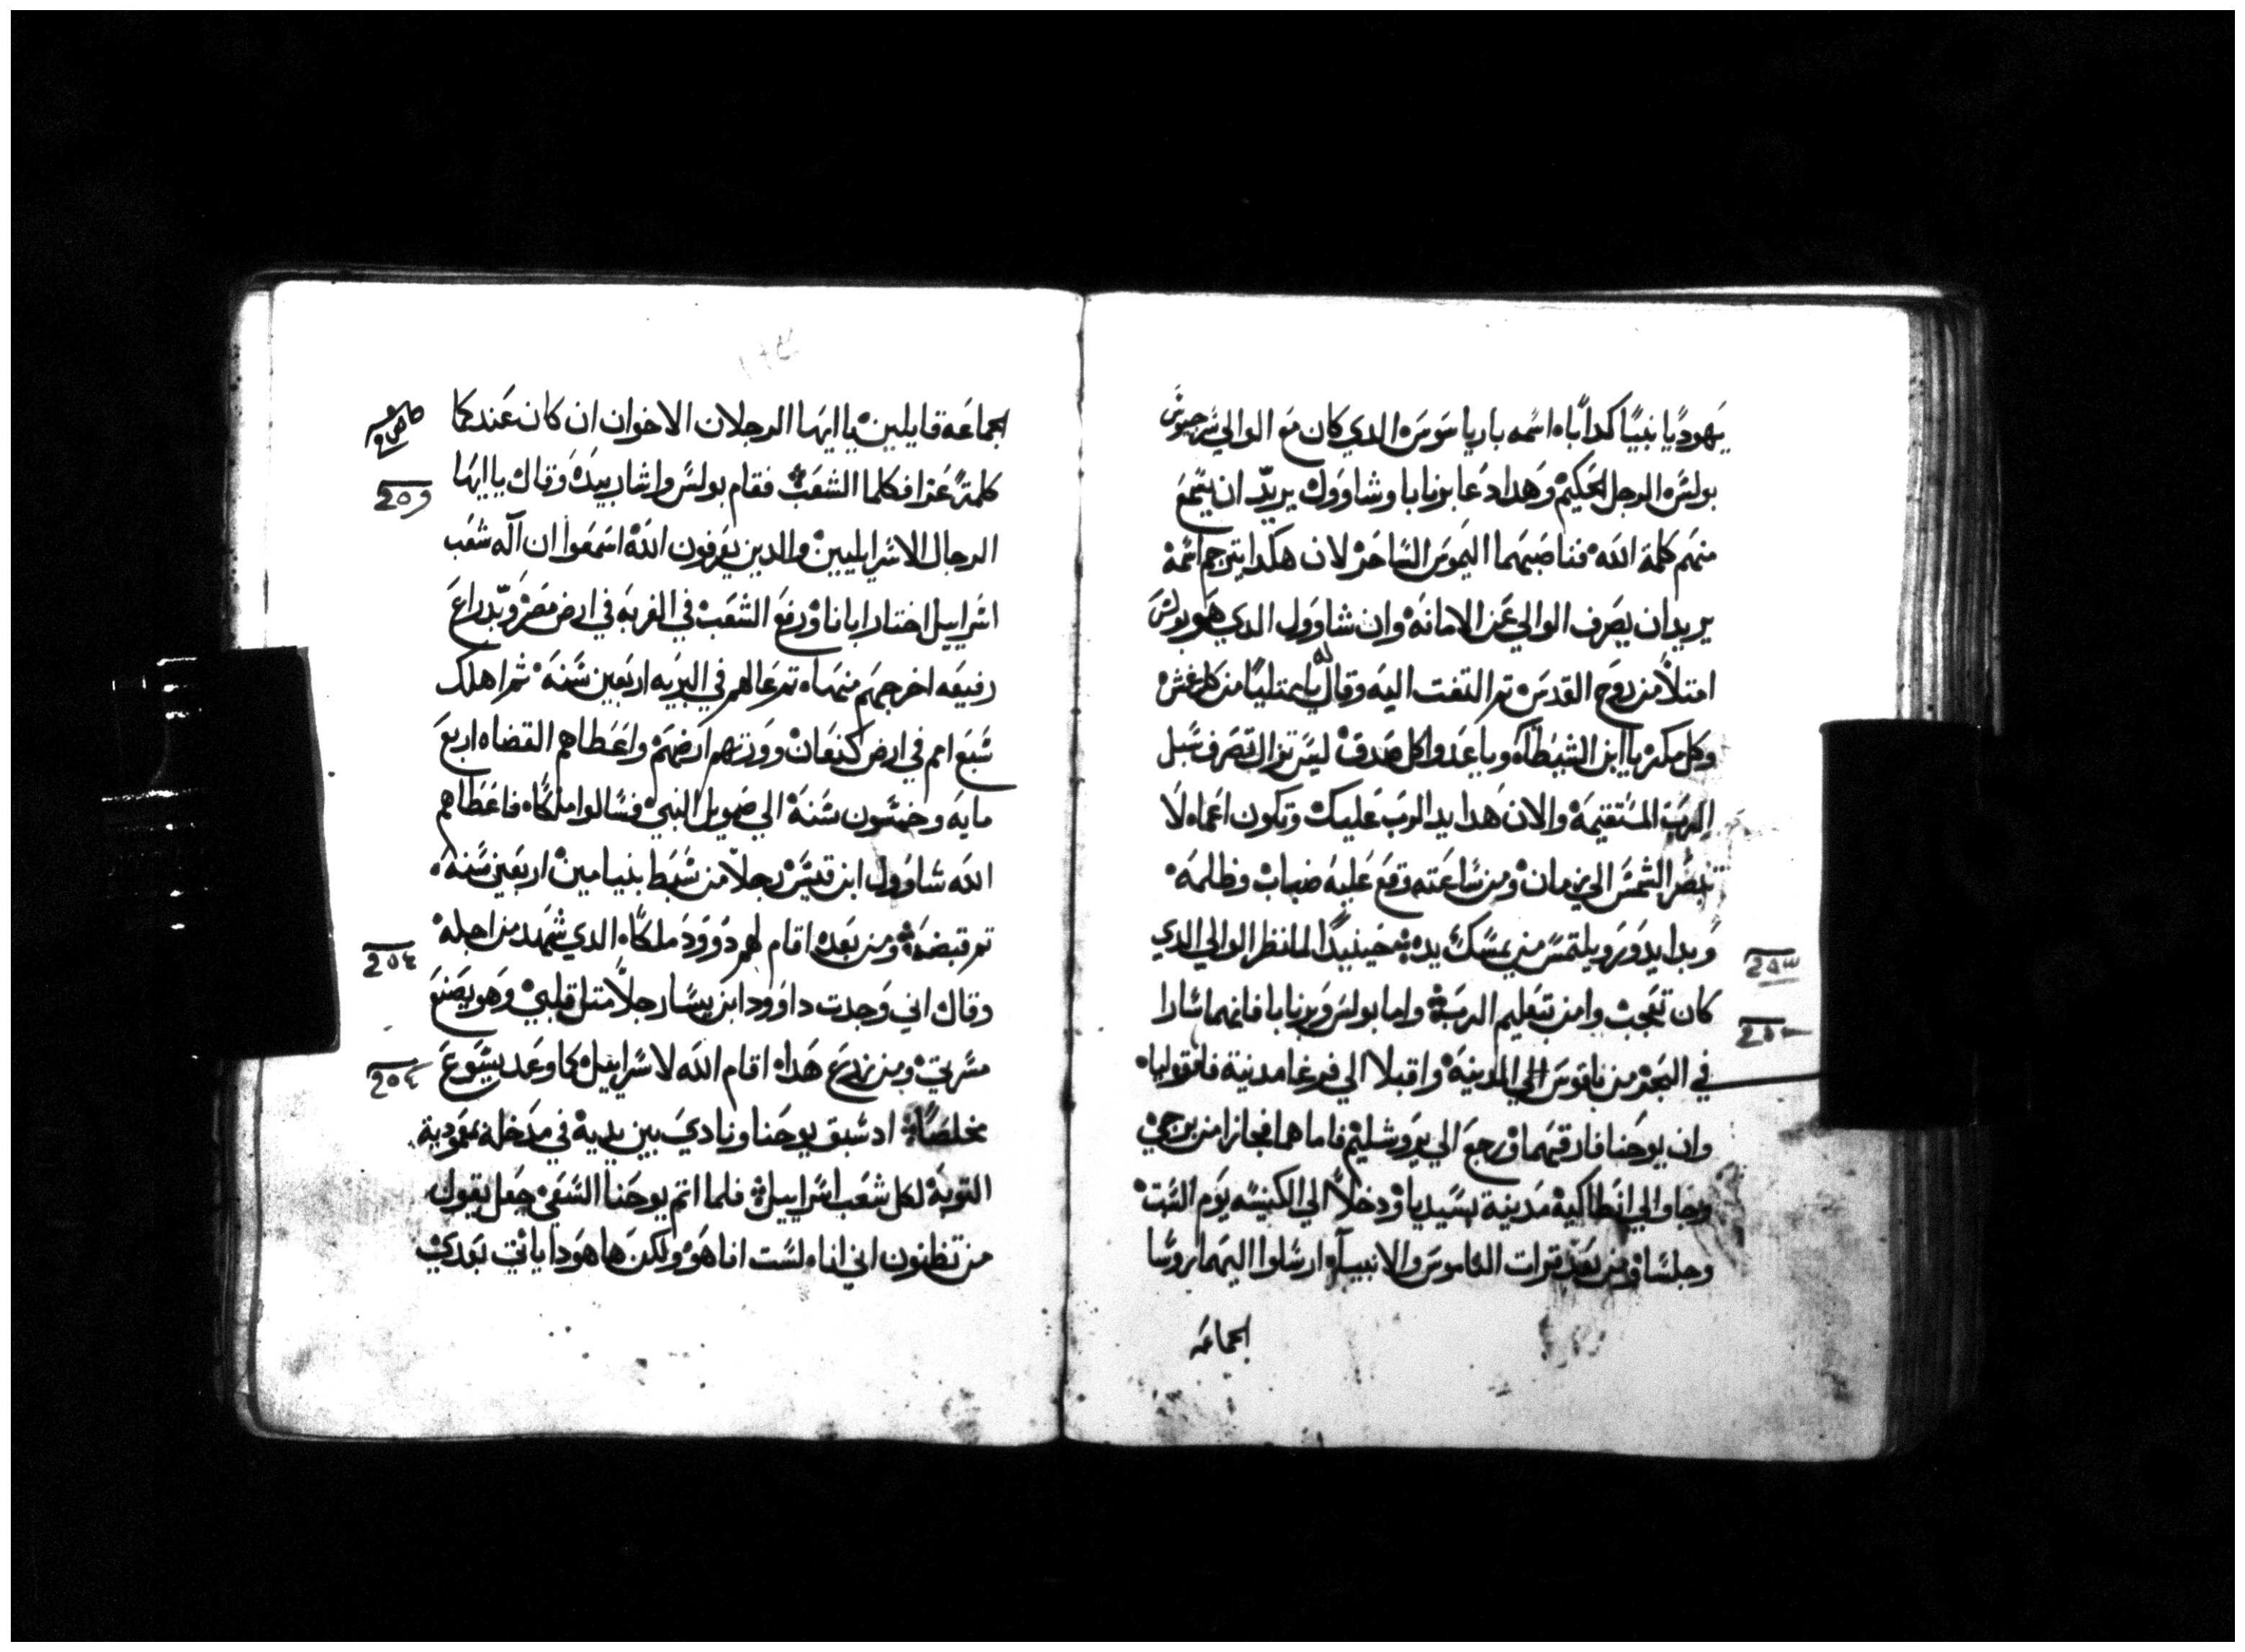 يهوديا نبيا كدابا اسمه بارياسوس الدي كان مع الوالي سرجيوس
بولس الرجل الحكيم وهدا دعا برنابا وشاوول يريد ان يسمع
منهم كلمة الله فناصبهما اليموس الساحر لان هكدا يترجم اسمه
يريد ان يصرف الوالي عن الامانه وان شاوول الدي هو بولس
امتلا من روح القدس تم التفت اليه وقال له يا ممتليا من كل غش
وكل مكر يا ابن الشيطان ويا عدو كل صدق ليس تزال تصرف سبل
الرب المستقيمة والان هدا يد الرب عليك وتكون اعما لا
تبصر الشمس الي زمان ومن ساعته وقع عليه ضباب وظلمه
وبدا يدور ويلتمس من يمسك يده حينيدا لما نظر الوالي الدي
كان تعجب وامن بتعليم الرب واما بولس وبرنابا فانهما سارا
في البحر من بافوس الي المدينه واقبلا الي فرغا مدينة فامفوليا
وان يوحنا فارقهما ورجع الي يروشليم فاما هما فجازا من برجي
وجاوا الي انطاكيه مدينة بسيديا ودخلا الي الكنيسه يوم السبت
وجلسا ومن بعد قرات الناموس والانبياء ارسلوا اليهما روسا
الجماعه
الجماعة قايلين يا ايها الرجلان الاخوان ان كان عندكما
كلمة عزا فكلما الشعب فقام بولس واشار بيده وقال يا ايها
الرجال الاسراييليين والدين يعرفون الله اسمعوا ان اله شعب
اسراييل اختار ابانا ورفع الشعب في الغربه في ارض مصر وبدراع
رفيعه اخرجهم منها تم عالهم في البريه اربعين سنه ثم اهلك
سبع امم في ارض كنعان وورتهم ارضهم واعطاهم القضاه اربع
مايه وخمسون سنة الي صمويل النبي فسالوا ملكا فاعطاهم
الله شاوول ابن قيس رجلا من سبط بنيامين اربعين سنه
تم قبضه ومن بعده اقام لهم داوود ملكا الدي شهد من اجله
وقال اني وجدت داوود ابن يسا رجلا متل قلبي وهو يصنع
مسرتي ومن زرع هدا اقام الله لاسراييل كما وعد يسوع
مخلصا اد سبق يوحنا ونادي بين يديه في مدخله بمعمودية
التوبة لكل شعب اسراييل فلما اتم يوحنا السعي جعل يقول
من تظنون اني انا لست انا هو ولكن ها هودا ياتي بعدي